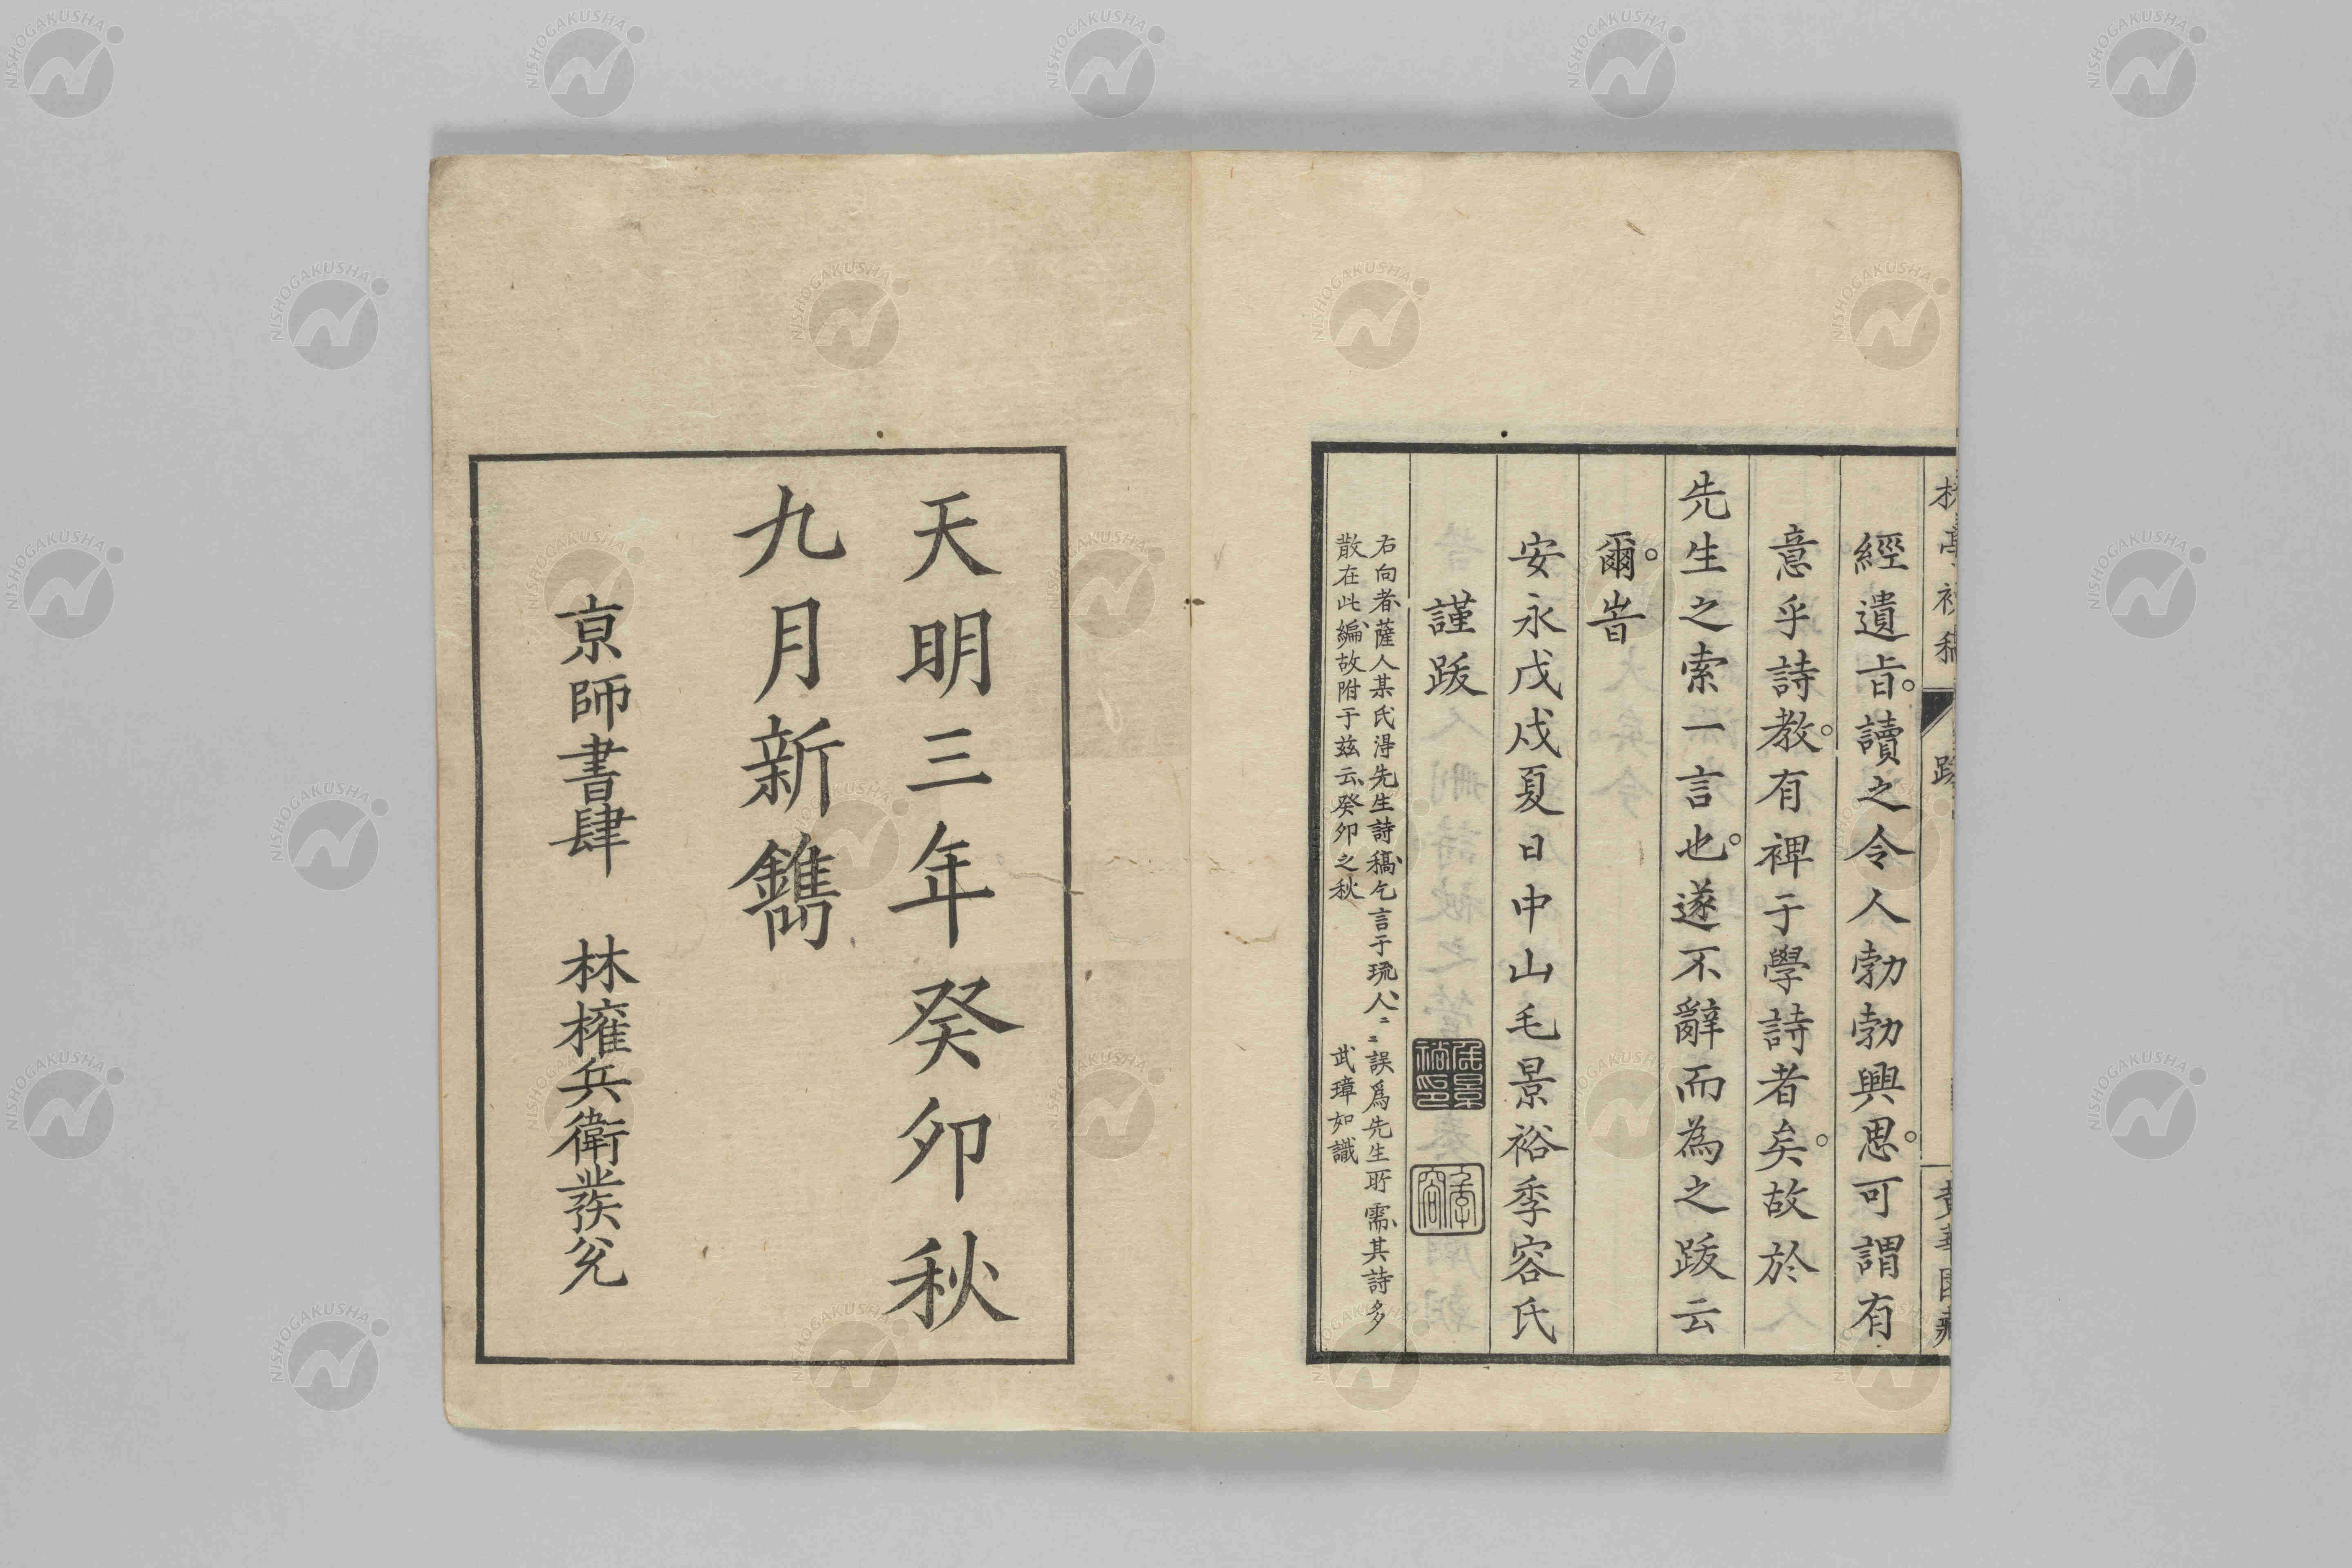 經遺㫖。讀之令人勃勃興思。可謂有
意乎詩教。有裨于學詩者矣。故於
先生之索一言也。遂不辭而為之跋云
爾。旹
安永戊戌夏日中山毛景裕季容氏
謹跋
右向者、薩人某氏得先生詩稿、乞言于琉人、二二誤爲先生所需、其詩多
散在此編、故附于茲云、癸卯之秋 武璋如識
天明三年癸卯秋
九月新鐫
京師書肆 林權兵衛發兌
NISHOGAKUSHA